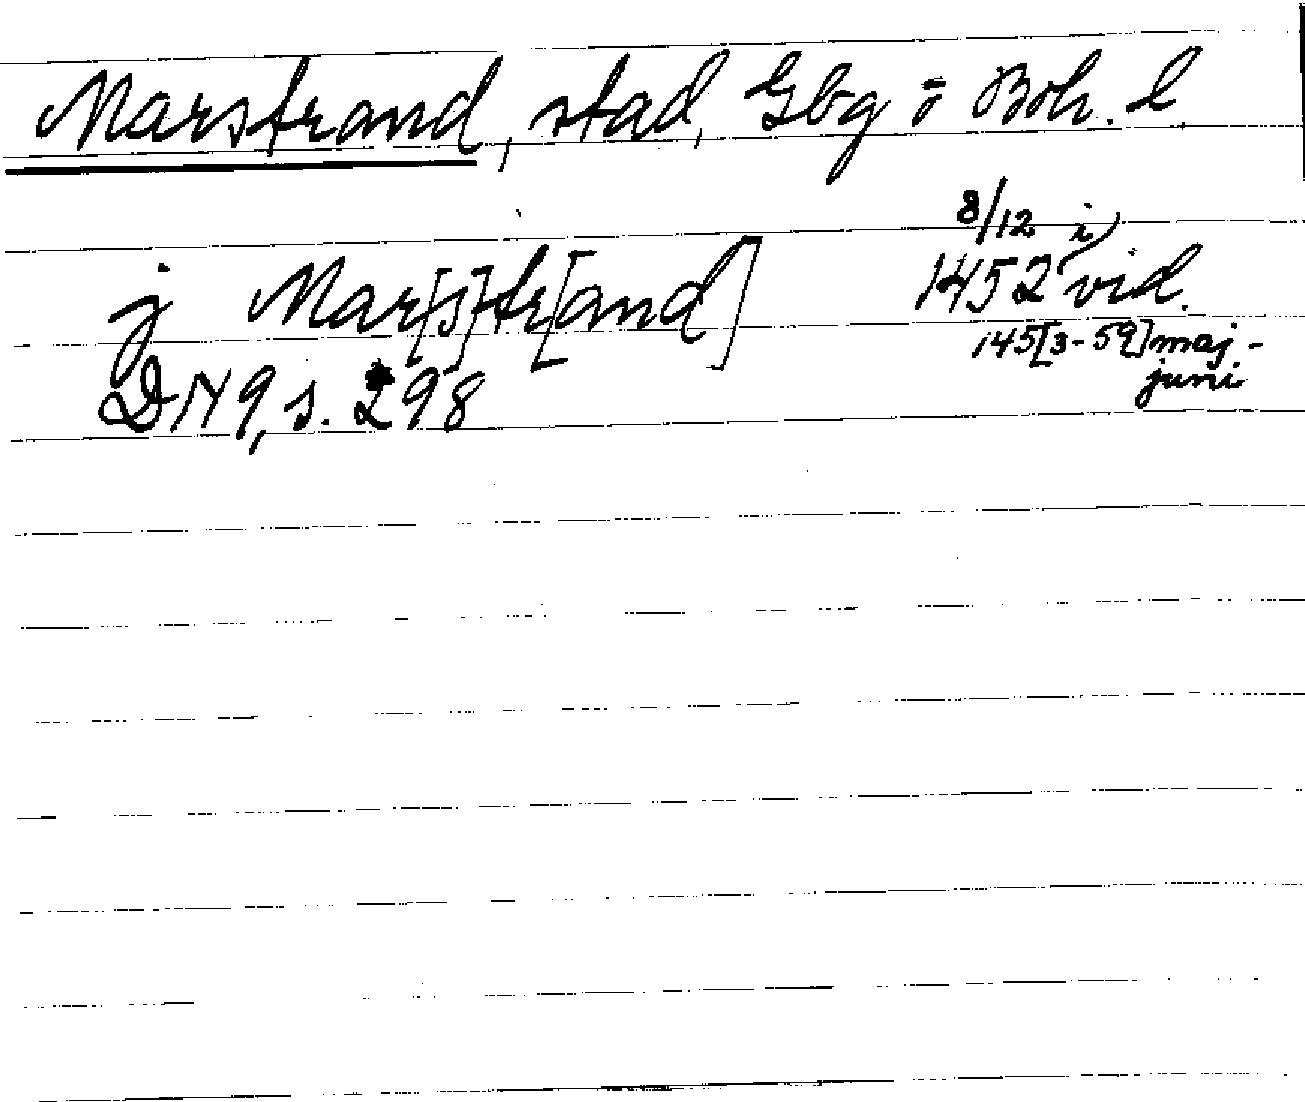 Marstrand, stad, Gbg o Boh. l.
8/12 i
j Mar[s]tr[and] 1452 vid.
145[3-59] maj-
juni
DN 9, s. 298